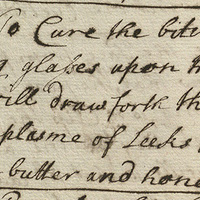 To Cure the biti
glasses upon
will draw forth th
plasme of Leeks
butter and hone